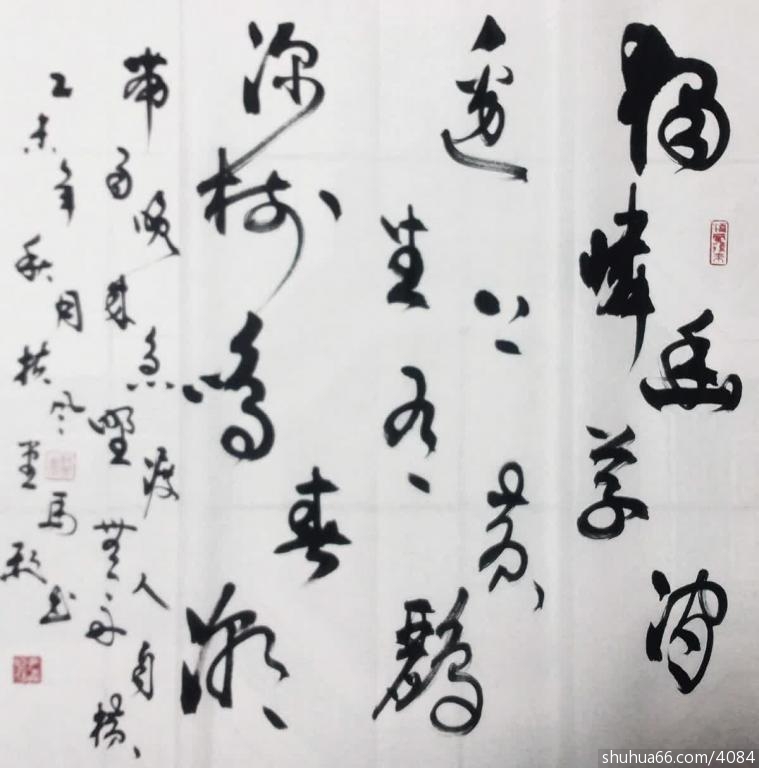 獨憐幽草澗
邊生上有黃鸝
深樹鳴春潮
帶雨晚來急野渡無人舟自橫
乙未年秋月扶風堂馬書
shuhua66.com/4084